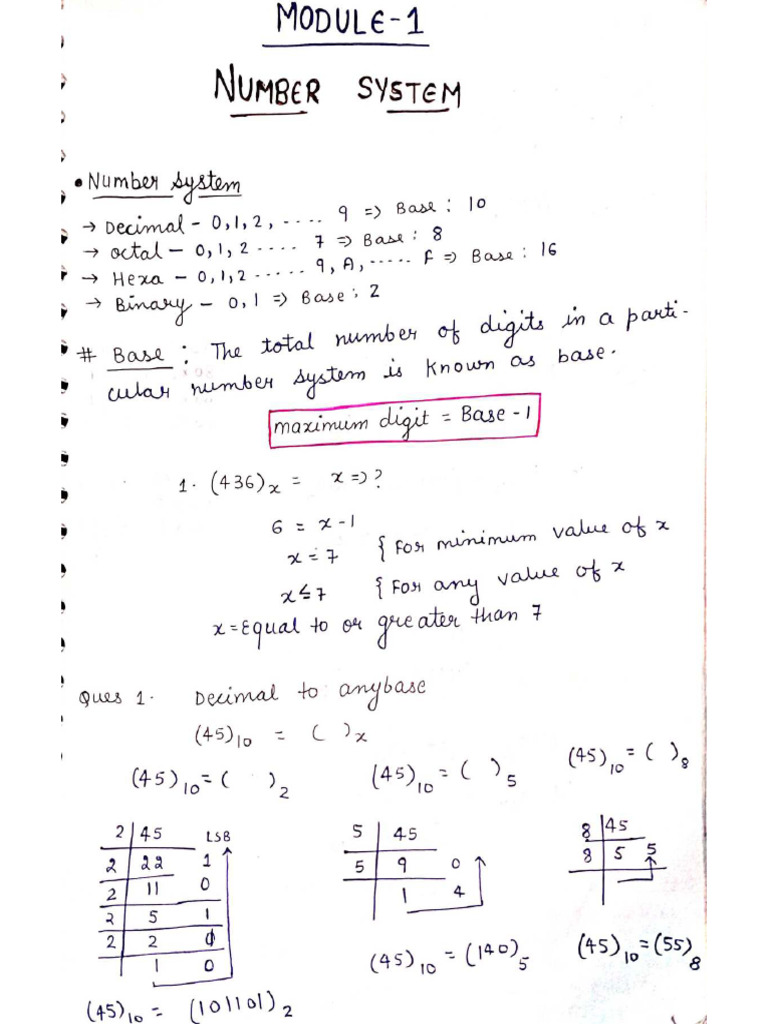 MODULE-1
NUMBER SYSTEM
• Number system
→ Decimal - 0,1,2, .... 9 => Base : 10
→ octal - 0,1,2 .... 7 => Base : 8
→ Hexa - 0,1,2 ..... 9, A, ..... F => Base : 16
→ Binary - 0,1 => Base : 2
# Base : The total number of digits in a parti-
cular number system is known as base.
maximum digit = Base - 1
1. (436)x = x => ?
6 = x - 1
x = 7 { For minimum value of x
x ≤ 7 { For any value of x
x = Equal to or greater than 7
Ques 1. Decimal to anybase
(45)10 = ( )x
(45)10 = ( )2 (45)10 = ( )5 (45)10 = ( )8
2 45 LSB 5 45 8 45
2 22 1 5 9 0 8 5 5
2 11 0 1 4
2 5 1
2 2 0
1 0
(45)10 = (101101)2 (45)10 = (140)5 (45)10 = (55)8